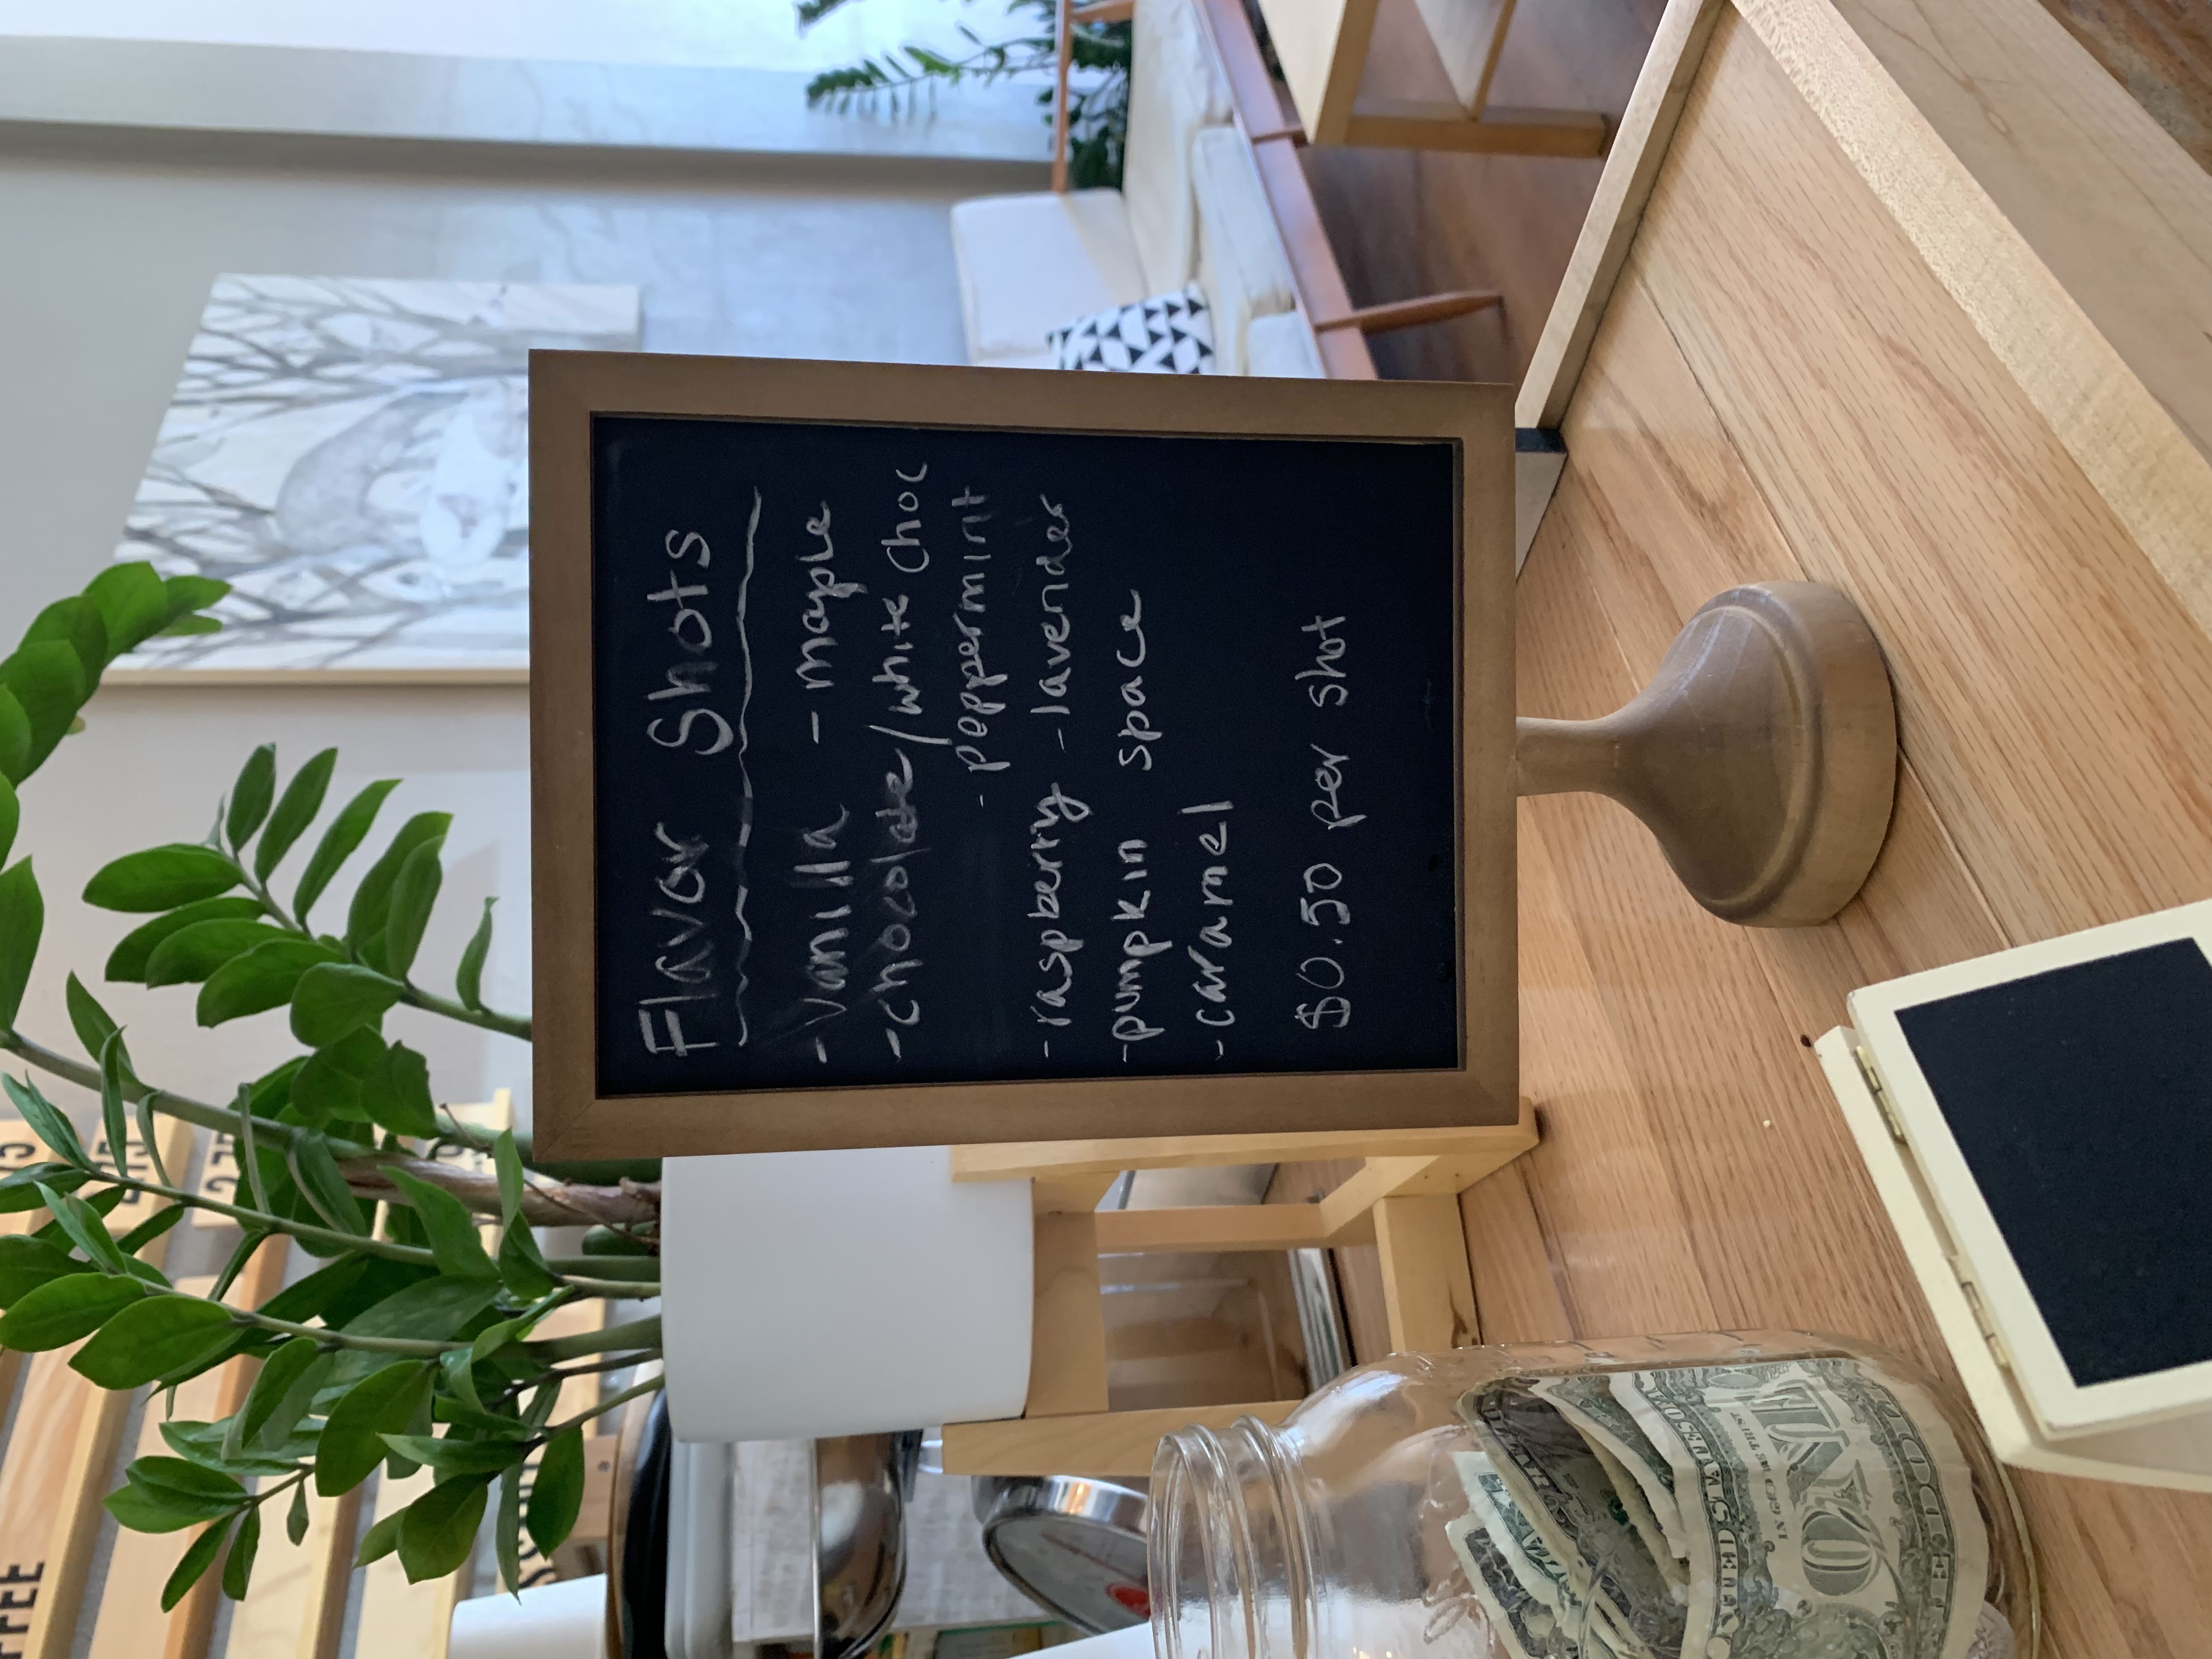 Flavor Shots
- vanilla - maple
- chocolate/white choc
- peppermint
- raspberry - lavender
- pumpkin space
- caramel
$0.50 per shot
ONE
IN GOD WE TRUST